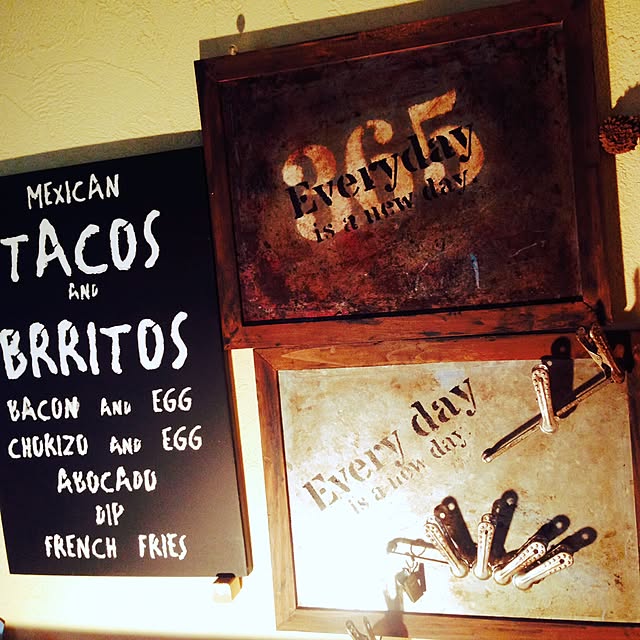 MEXICAN
TACOS
AND
BRRITOS
BACON AND EGG
CHORIZO AND EGG
ABOCADO
DIP
FRENCH FRIES
365
Everyday
is a new day
Every day
is a new day